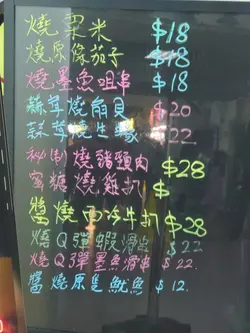 燒粟米 $18
燒原條茄子 $18
燒墨魚咀串 $18
蒜茸燒扇貝 $20
蒜茸燒生蠔 $22
秘制燒豬頸肉 $28
蜜糖燒雞扒 $
醬燒西冷牛扒 $28
燒Q彈蝦滑串 $22
燒Q彈墨魚滑串 $22.
醬燒原隻魷魚 $12.